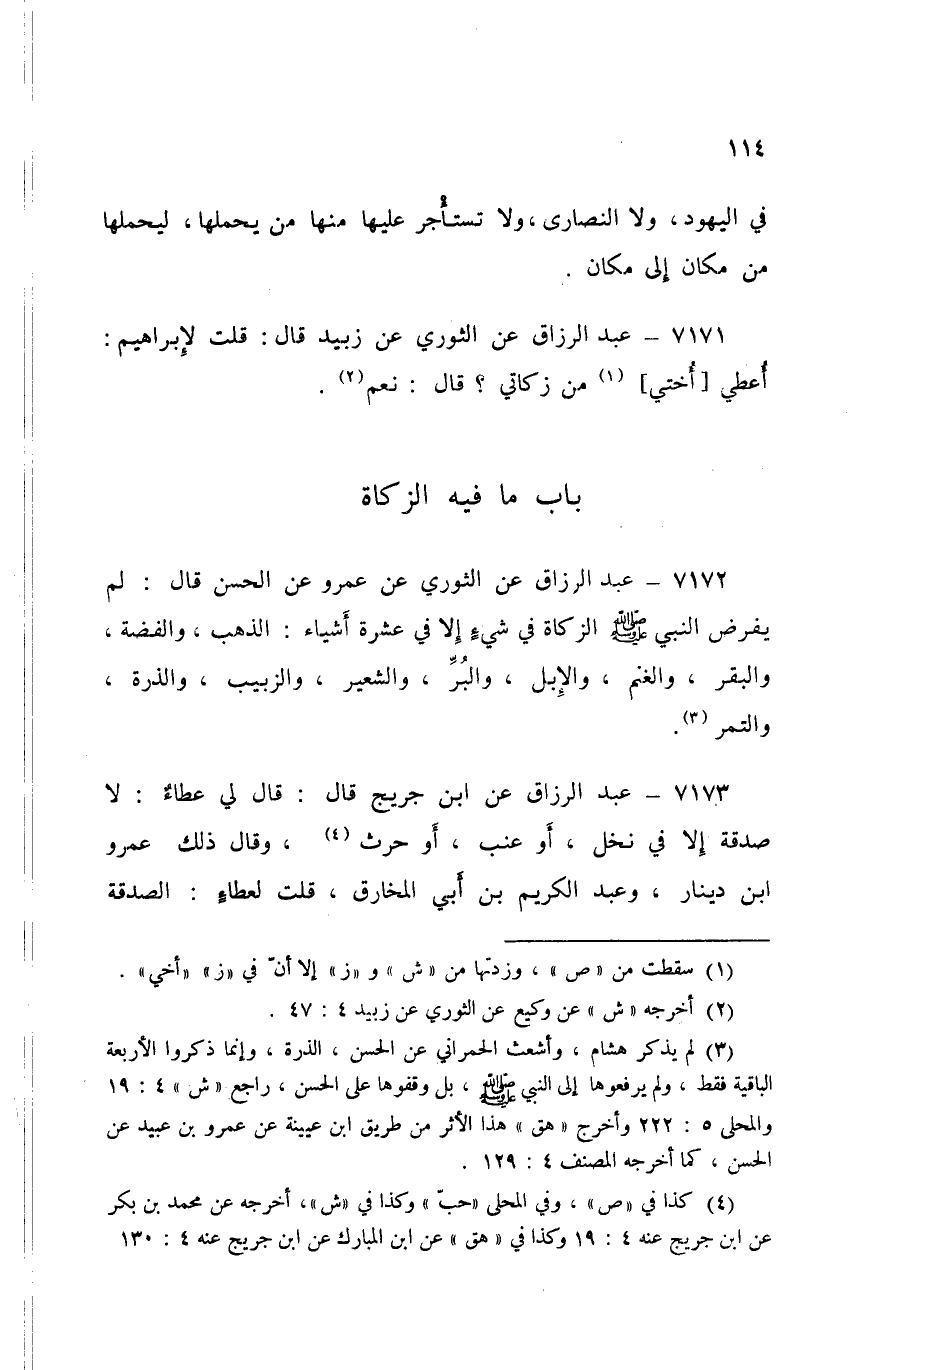 ١١٤
في اليهود ، ولا النصارى ، ولا تستأجر عليها منها من يحملها ، ليحملها
من مكان إلى مكان .
٧١٧١ – عبد الرزاق عن الثوري عن زبيد قال : قلت لإبراهيم :
أُعطي [أُختي] (١) من زكاتي ؟ قال : نعم(٢) .
باب ما فيه الزكاة
٧١٧٢ – عبد الرزاق عن الثوري عن عمرو عن الحسن قال : لم
يفرض النبي ﷺ الزكاة في شيءٍ إلا في عشرة أَشياء : الذهب ، والفضة ،
والبقر ، والغنم ، والإبل ، والبُرِّ ، والشعير ، والزبيب ، والذرة ،
والتمر (٣).
٧١٧٣ – عبد الرزاق عن ابن جريج قال : قال لي عطاءٌ : لا
صدقة إلا في نخل ، أَو عنب ، أَو حرث (٤) ، وقال ذلك عمرو
ابن دينار ، وعبد الكريم بن أَبي المخارق ، قلت لعطاءٍ : الصدقة
(١) سقطت من « ص » ، وزدتها من « ش » و « ز » إلا أنّ في « ز » « أخي » .
(٢) أخرجه « ش » عن وكيع عن الثوري عن زبيد ٤ : ٤٧ .
(٣) لم يذكر هشام ، وأشعث الحمراني عن الحسن ، الذرة ، وإنما ذكروا الأربعة
الباقية فقط ، ولم يرفعوها إلى النبي ﷺ ، بل وقفوها على الحسن ، راجع « ش » ٤ : ١٩
والمحلى ٥ : ٢٢٢ وأخرج « هق » هذا الأثر من طريق ابن عيينة عن عمرو بن عبيد عن
الحسن ، كما أخرجه المصنف ٤ : ١٢٩ .
(٤) كذا في « ص » ، وفي المحلى « حبّ » وكذا في « ش » ، أخرجه عن محمد بن بكر
عن ابن جريج عنه ٤ : ١٩ وكذا في « هق » عن ابن المبارك عن ابن جريج عنه ٤ : ١٣٠